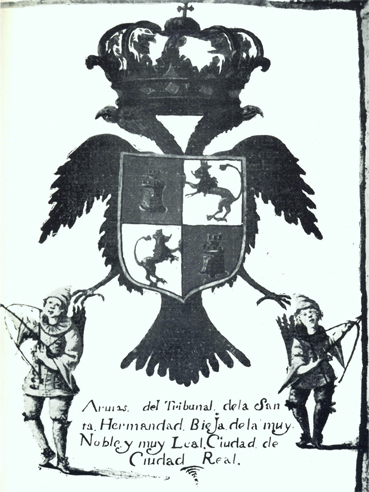 Armas. del Tribunal. de la San
ta. Hermandad. Bieja. de la muy.
Noble, y muy Leal. Ciudad. de
Ciudad Real.